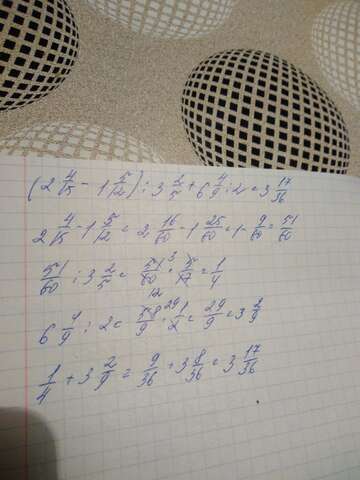 (2 4/15 - 1 5/12) : 3 2/5 + 6 4/9 : 2 = 3 17/36
2 4/15 - 1 5/12 = 2 16/60 - 1 25/60 = 1 - 9/60 = 51/60
51/60 : 3 2/5 = 51/60 · 5/17 = 1/4
3
12
6 4/9 : 2 = 58/9 · 1/2 = 29/9 = 3 2/9
29
1/4 + 3 2/9 = 9/36 + 3 8/36 = 3 17/36